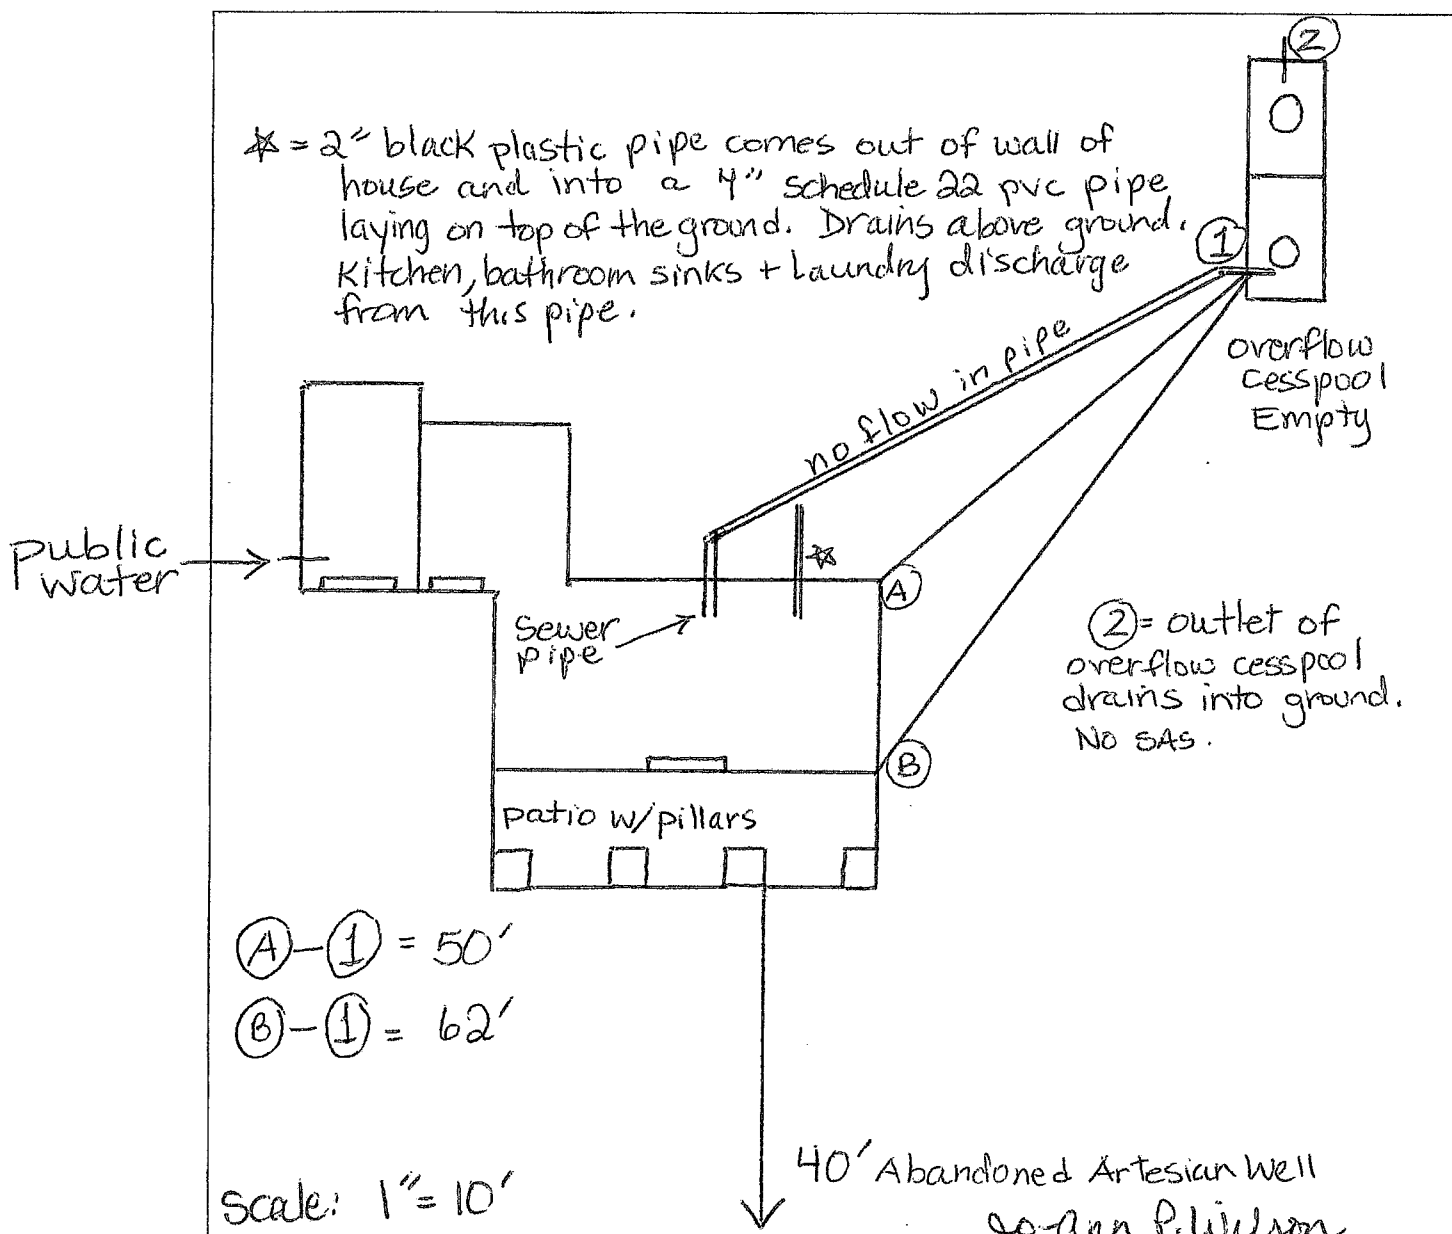 2
☆ = 2" black plastic pipe comes out of wall of
house and into a 4" schedule 22 pvc pipe
laying on top of the ground. Drains above ground.
Kitchen, bathroom sinks + Laundry discharge
from this pipe.
1
overflow
cesspool
Empty
no flow in pipe
public
water
☆
A
sewer
pipe
2 = outlet of
overflow cesspool
drains into ground.
No SAS.
B
patio w/pillars
A-1 = 50'
B-1 = 62'
40' Abandoned Artesian Well
Scale: 1" = 10'
Jo-Ann P. Wilson